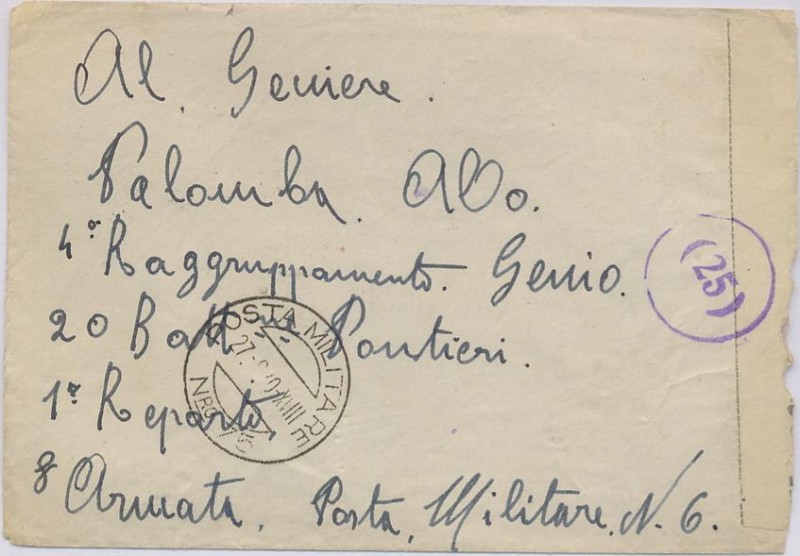 Al Geniere.
Palomba Aldo.
4° Raggruppamento. Genio.
(25)
20 Batt Pontieri.
POSTA MILITARE
1° Reparto,
8 Armata, Posta, Militare, N. 6.